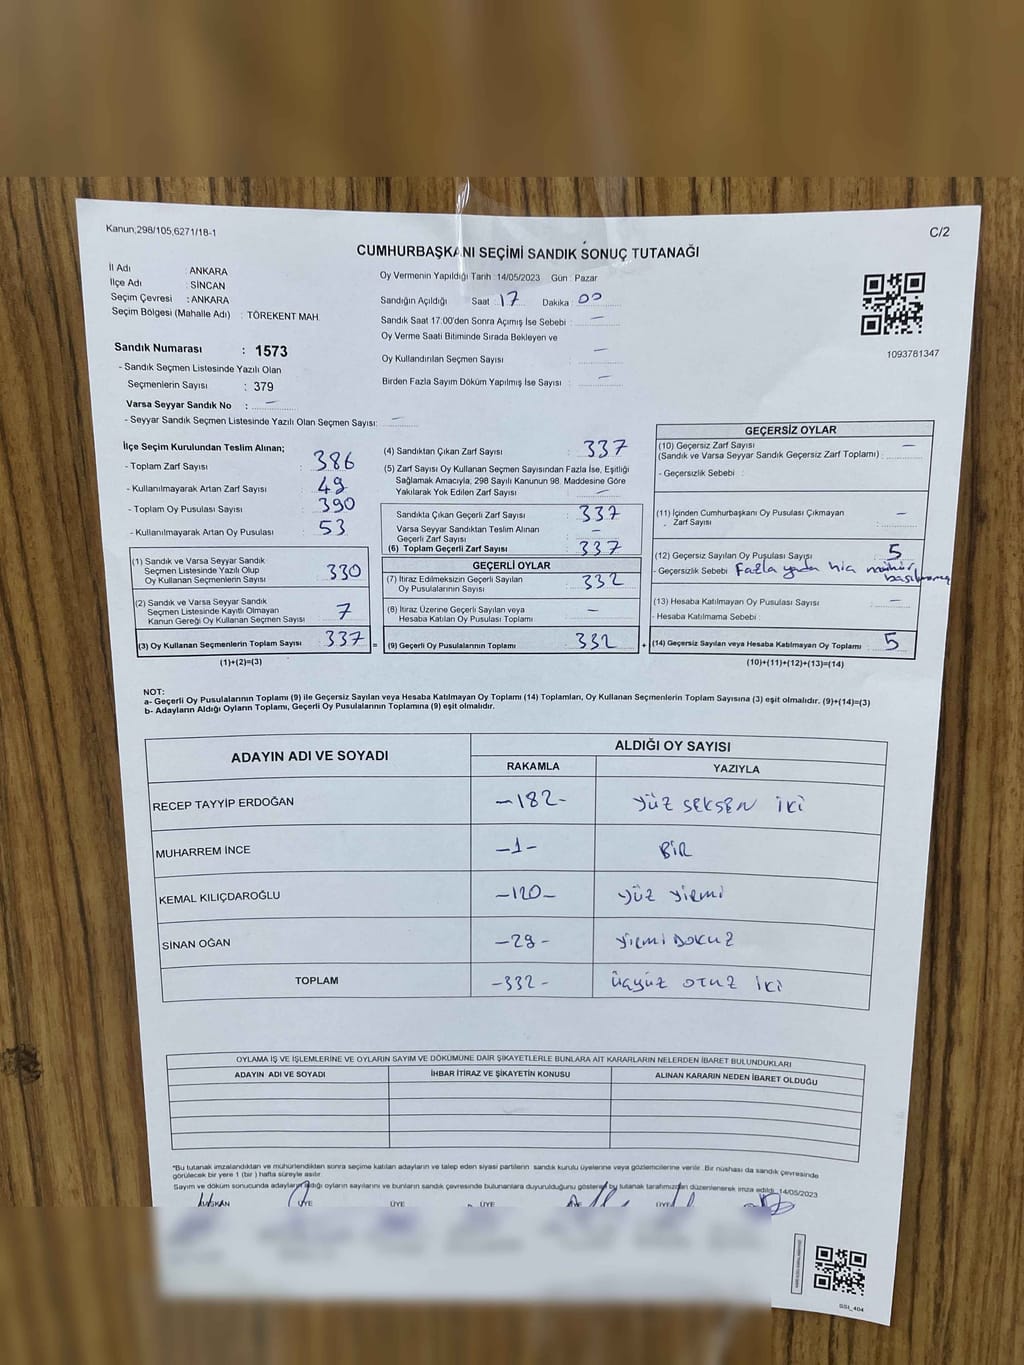 Kanun,298/105,6271/18-1
C/2
CUMHURBAŞKANI SEÇİMİ SANDIK SONUÇ TUTANAĞI
İl Adı ANKARA
İlçe Adı : SİNCAN
Seçim Çevresi : ANKARA
Seçim Bölgesi (Mahalle Adı) : TÖREKENT MAH.
Sandık Numarası : 1573
- Sandık Seçmen Listesinde Yazılı Olan
Seçmenlerin Sayısı : 379
Varsa Seyyar Sandık No : -
- Seyyar Sandık Seçmen Listesinde Yazılı Olan Seçmen Sayısı: -
Oy Vermenin Yapıldığı Tarih : 14/05/2023 Gün : Pazar
Sandığın Açıldığı Saat : 17 Dakika : 00
Sandık Saat 17:00'den Sonra Açımış İse Sebebi : -
Oy Verme Saati Bitiminde Sırada Bekleyen ve
Oy Kullandırılan Seçmen Sayısı : -
Birden Fazla Sayım Döküm Yapılmış İse Sayısı : -
1093781347
İlçe Seçim Kurulundan Teslim Alınan;
- Toplam Zarf Sayısı : 386
- Kullanılmayarak Artan Zarf Sayısı : 49
- Toplam Oy Pusulası Sayısı : 390
- Kullanılmayarak Artan Oy Pusulası : 53
(1) Sandık ve Varsa Seyyar Sandık
Seçmen Listesinde Yazılı Olup
Oy Kullanan Seçmenlerin Sayısı 330
(2) Sandık ve Varsa Seyyar Sandık
Seçmen Listesinde Kayıtlı Olmayan
Kanun Gereği Oy Kullanan Seçmen Sayısı 7
(3) Oy Kullanan Seçmenlerin Toplam Sayısı 337
(1)+(2)=(3)
(4) Sandıktan Çıkan Zarf Sayısı : 337
(5) Zarf Sayısı Oy Kullanan Seçmen Sayısından Fazla İse, Eşitliği
Sağlamak Amacıyla, 298 Sayılı Kanunun 98. Maddesine Göre
Yakılarak Yok Edilen Zarf Sayısı : -
Sandıkta Çıkan Geçerli Zarf Sayısı : 337
Varsa Seyyar Sandıktan Teslim Alınan
Geçerli Zarf Sayısı : -
(6) Toplam Geçerli Zarf Sayısı : 337
GEÇERLİ OYLAR
(7) İtiraz Edilmeksizin Geçerli Sayılan
Oy Pusulalarının Sayısı : 332
(8) İtiraz Üzerine Geçerli Sayılan veya
Hesaba Katılan Oy Pusulası Toplamı : -
= (9) Geçerli Oy Pusulalarının Toplamı : 332 +
GEÇERSİZ OYLAR
(10) Geçersiz Zarf Sayısı
(Sandık ve Varsa Seyyar Sandık Geçersiz Zarf Toplamı) : -
- Geçersizlik Sebebi :
(11) İçinden Cumhurbaşkanı Oy Pusulası Çıkmayan
Zarf Sayısı : -
(12) Geçersiz Sayılan Oy Pusulası Sayısı : 5
- Geçersizlik Sebebi Fazla yada hiç mühür
(13) Hesaba Katılmayan Oy Pusulası Sayısı : -
- Hesaba Katılmama Sebebi :
(14) Geçersiz Sayılan veya Hesaba Katılmayan Oy Toplamı : 5
(10)+(11)+(12)+(13)=(14)
NOT:
a- Geçerli Oy Pusulalarının Toplamı (9) ile Geçersiz Sayılan veya Hesaba Katılmayan Oy Toplamı (14) Toplamları, Oy Kullanan Seçmenlerin Toplam Sayısına (3) eşit olmalıdır. (9)+(14)=(3)
b- Adayların Aldığı Oyların Toplamı, Geçerli Oy Pusulalarının Toplamına (9) eşit olmalıdır.
ADAYIN ADI VE SOYADI ALDIĞI OY SAYISI
RAKAMLA YAZIYLA
RECEP TAYYİP ERDOĞAN -182- YÜZ SEKSEN İKİ
MUHARREM İNCE -1- BİR
KEMAL KILIÇDAROĞLU -120- yüz yirmi
SİNAN OĞAN -29- yirmi DOKUZ
TOPLAM -332- üçyüz OTUZ İKİ
OYLAMA İŞ VE İŞLEMLERİNE VE OYLARIN SAYIM VE DÖKÜMÜNE DAİR ŞİKAYETLERLE BUNLARA AİT KARARLARIN NELERDEN İBARET BULUNDUKLARI
ADAYIN ADI VE SOYADI İHBAR İTİRAZ VE ŞİKAYETİN KONUSU ALINAN KARARIN NEDEN İBARET OLDUĞU
*Bu tutanak imzalandıktan ve mühürlendikten sonra seçime katılan adayların ve talep eden siyasi partilerin sandık kurulu üyelerine veya gözlemcilerine verilir. Bir nüshası da sandık çevresinde
görülecek bir yere 1 (bir ) hafta süreyle asılır.
Sayım ve döküm sonucunda adayların aldığı oyların sayılarını ve bunların sandık çevresinde bulunanlara duyurulduğunu gösteren bu tutanak tarafımızdan düzenlenerek imza edildi. 14/05/2023
BAŞKAN ÜYE ÜYE ÜYE ÜYE ÜYE
SSI_404